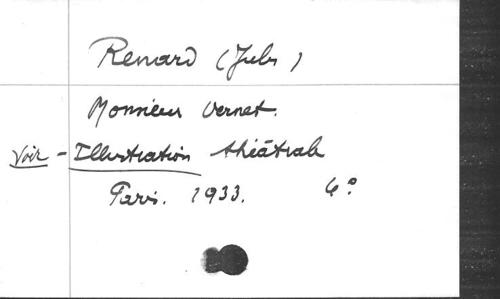 Renard (Jules)
Monsieur Vernet.
Voir - Illustration théâtrale
Paris. 1933. 4°